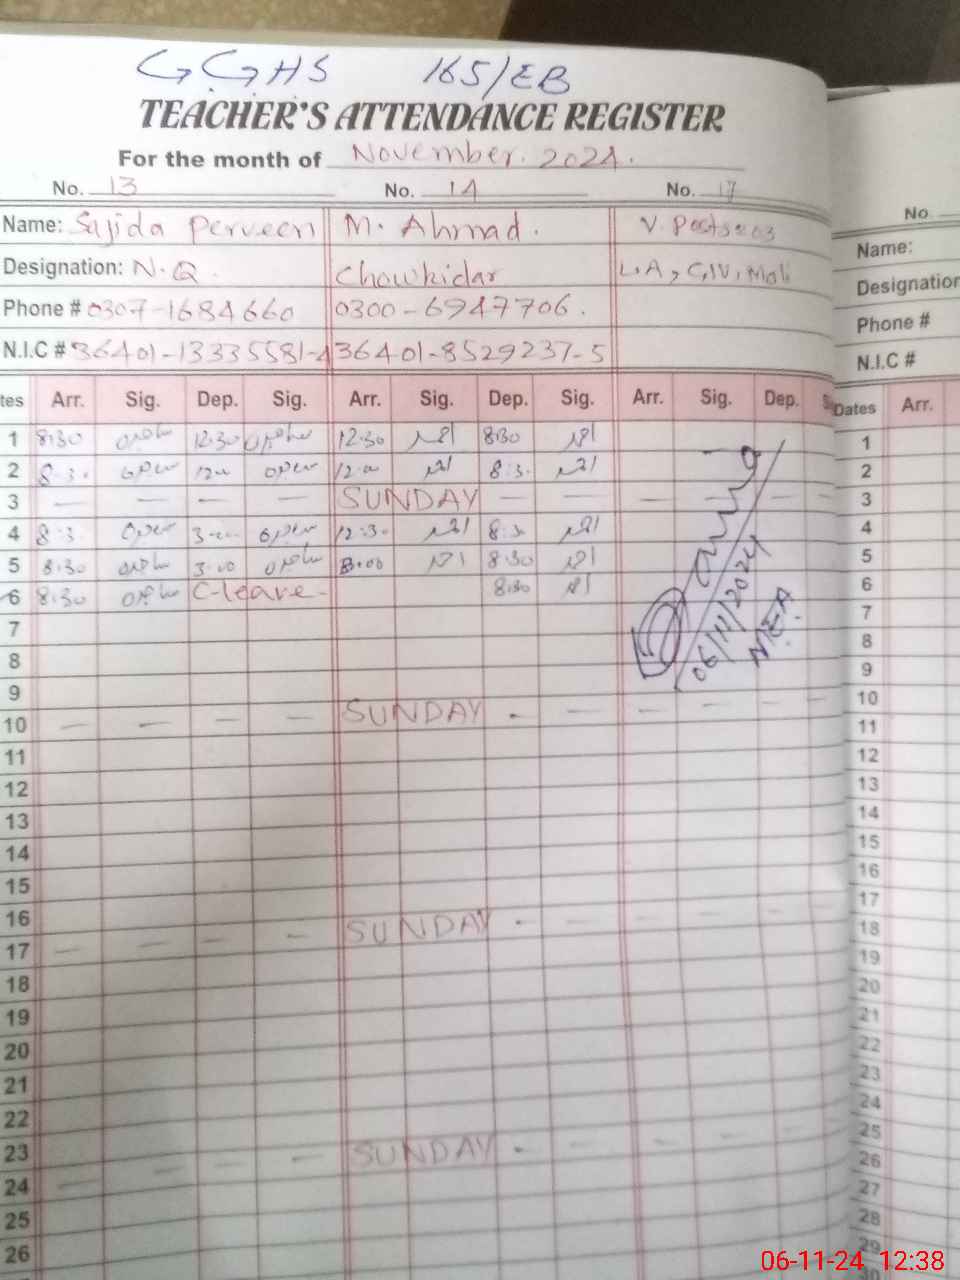 GGHS 165/EB
TEACHER'S ATTENDANCE REGISTER
For the month of November. 2024.
No. 13 No. 14 No. 17
Name: Sajida Perveen M. Ahmad. V. Posts=03
Designation: N.Q. Chowkidar L.A, C.IV, Mali
Phone # 0307-1684660 0300-6947706.
N.I.C # 36401-13335581-4 36401-8529237-5
tes Arr. Sig. Dep. Sig. Arr. Sig. Dep. Sig. Arr. Sig. Dep.
1 8:30 ساجدہ 12:30 ساجدہ 12:30 احمد 8:30 احمد
2 8:30 ساجدہ 12:00 ساجدہ 12:00 احمد 8:30 احمد
3 — — — — SUNDAY — — — — —
4 8:30 ساجدہ 3:00 ساجدہ 12:30 احمد 8:30 احمد
5 8:30 ساجدہ 3:00 ساجدہ 3:00 احمد 8:30 احمد
6 8:30 ساجدہ C-leave- 8:30 احمد
06/11/2024
7
8
9
10 — — — — SUNDAY - — — — — —
11
12
13
14
15
16
17 — — — — SUNDAY - — — — — —
18
19
20
21
22
23
24 — — — SUNDAY - — — — — —
25
26
No.
Name:
Designation
Phone #
N.I.C #
Dates Arr.
1
2
3
4
5
6
7
8
9
10
11
12
13
14
15
16
17
18
19
20
21
22
23
24
25
26
27
28
29
06-11-24 12:38